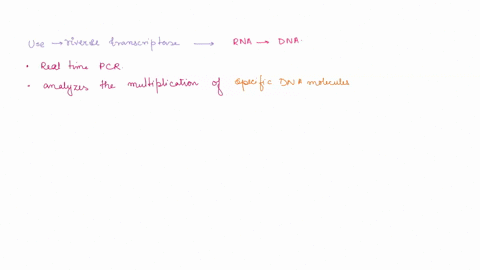 Use → riverse transcriptase → RNA → DNA.
• Real time PCR
• analyzes the multiplication of specific DNA molecules